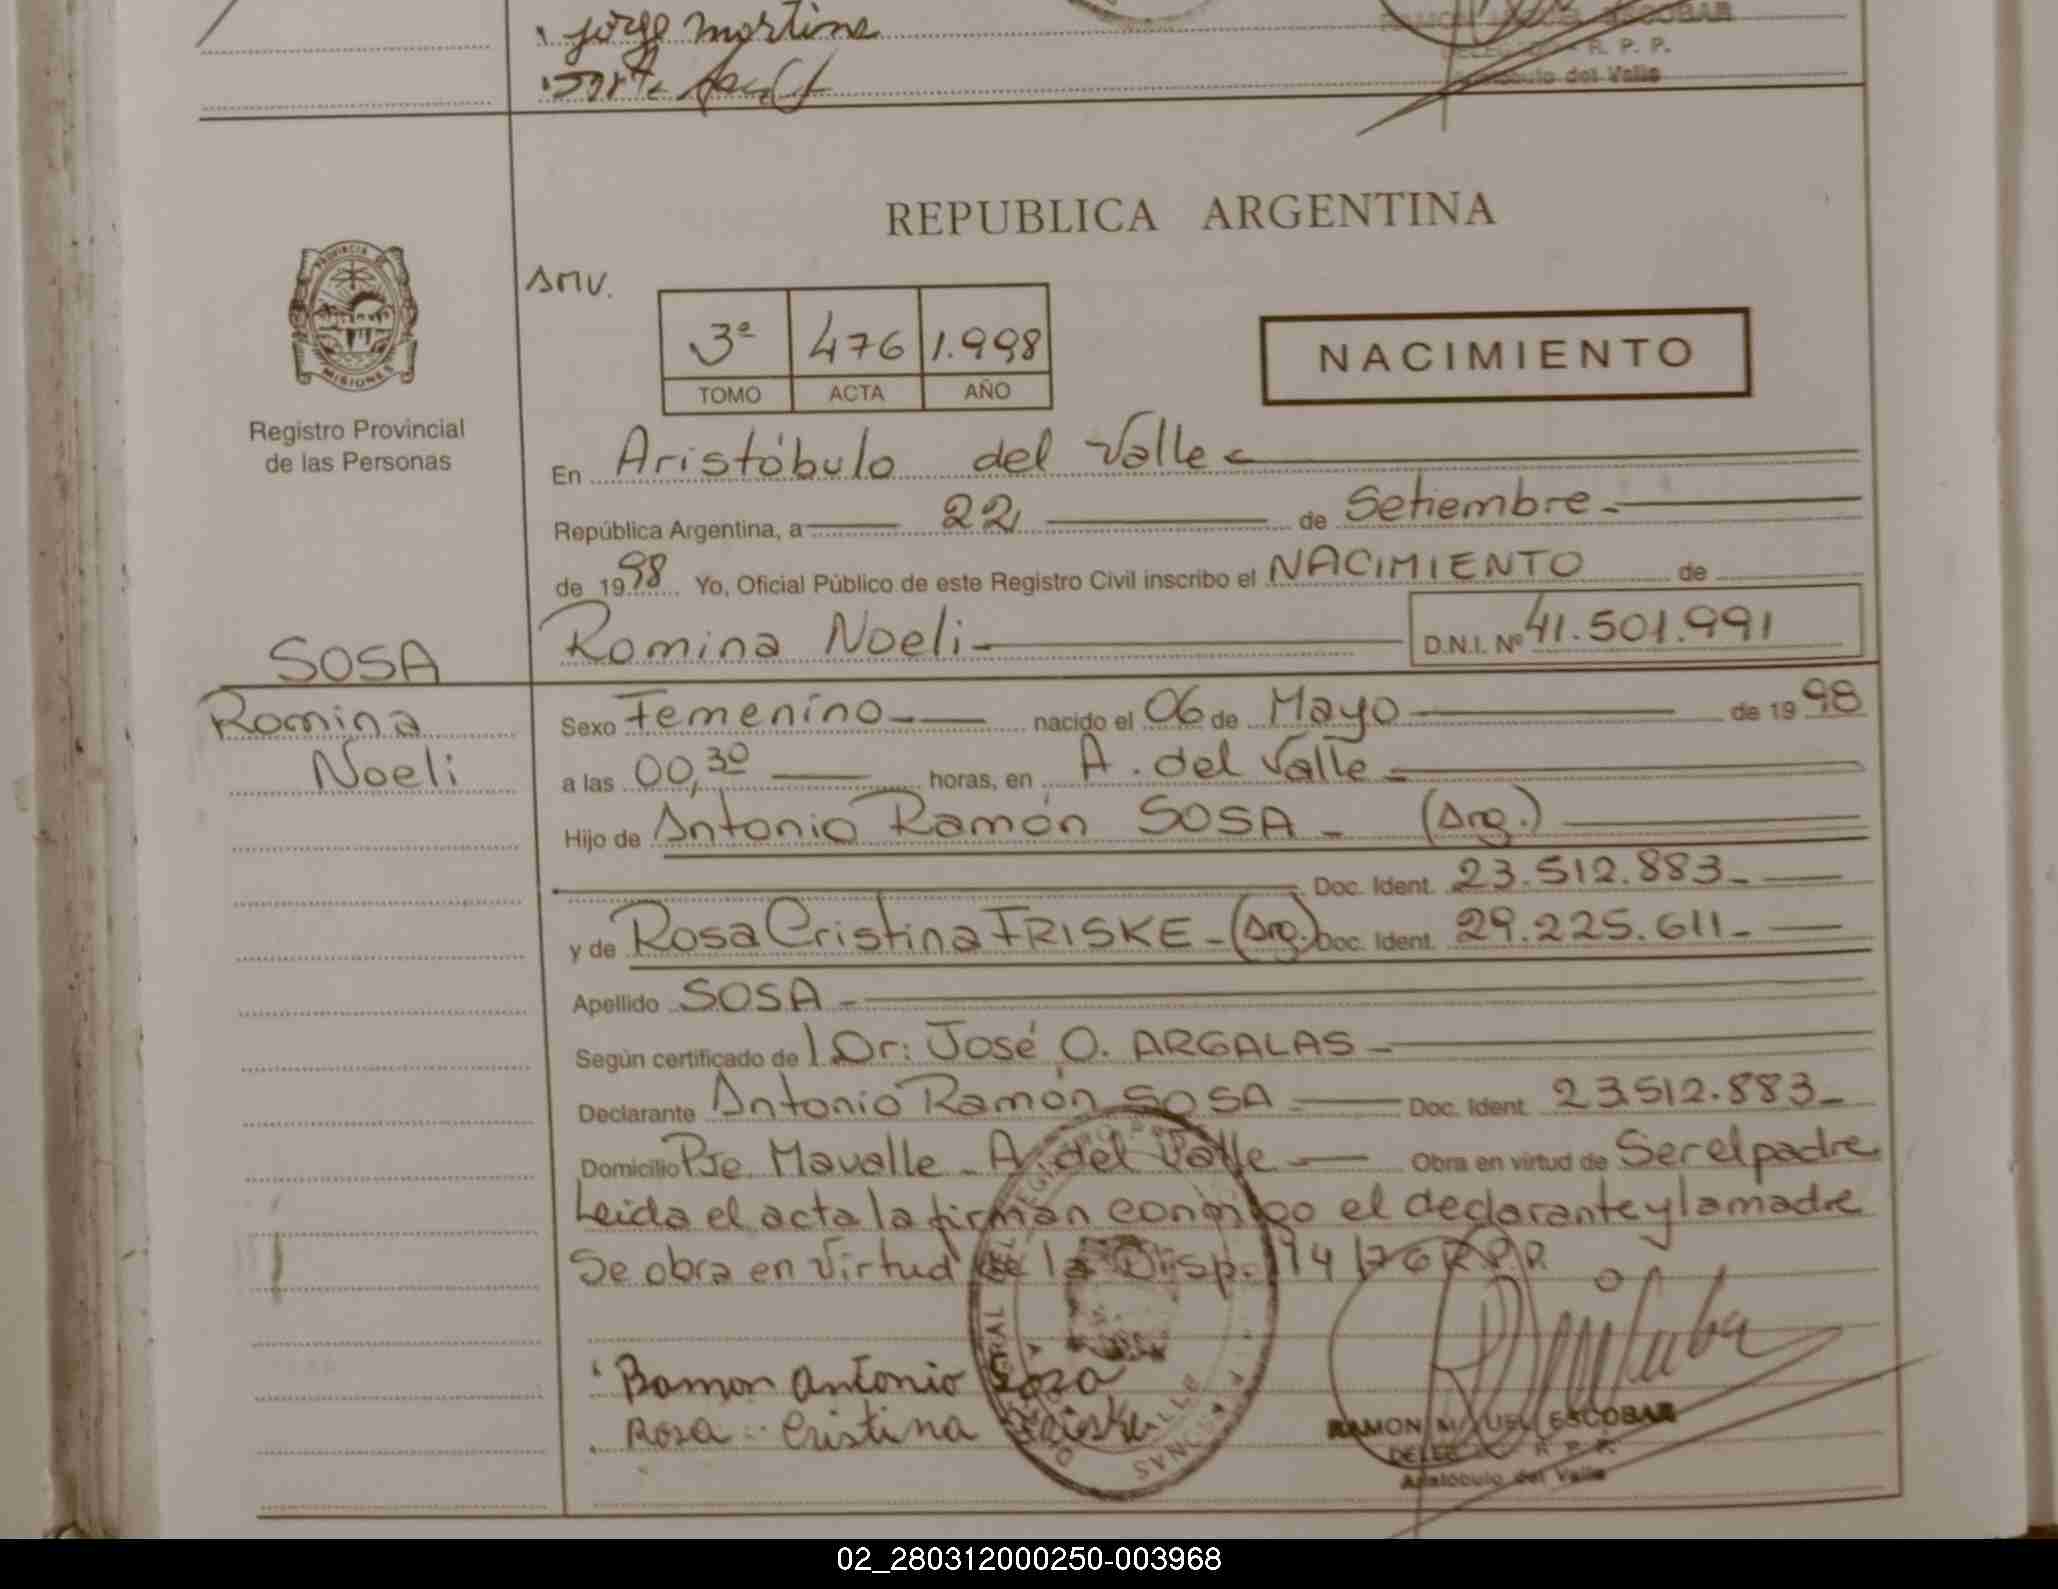 Jorge Martins
R. P. P.
Aristóbulo del Valle
REPUBLICA ARGENTINA
PROVINCIA DE
MISIONES
Registro Provincial
de las Personas
AMV.
3º 476 1.998
TOMO ACTA AÑO
NACIMIENTO
En Aristóbulo del Valle
República Argentina, a 22 de Setiembre.
de 1998 Yo, Oficial Público de este Registro Civil inscribo el NACIMIENTO de
Romina Noeli D.N.I. Nº 41.501.991
SOSA
Romina
Noeli
Sexo Femenino nacido el 06 de Mayo de 1998
a las 00,30 horas, en A. del Valle
Hijo de Antonio Ramón SOSA (Arg.)
Doc. Ident. 23.512.883
y de Rosa Cristina FRISKE (Arg.) Doc. Ident. 29.225.611
Apellido SOSA
Según certificado de l Dr: José O. ARGALAS
Declarante Antonio Ramón SOSA Doc. Ident. 23.512.883
Domicilio Pje. Mavalle - A. del Valle Obra en virtud de Ser el padre
Leida el acta la firman conmigo el declarante y la madre
Se obra en virtud de la Disp. 114/76 R.P.P.
Ramon Antonio Sosa
Rosa Cristina
RAMON MIGUEL ESCOBAR
R. P. P.
Aristóbulo del Valle
02_280312000250-003968